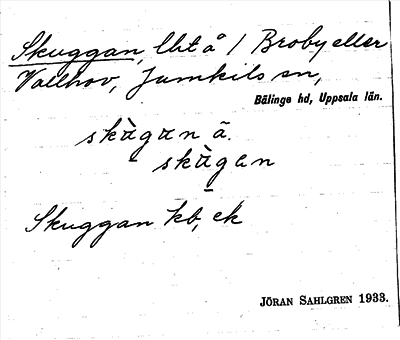 Skuggan, lht å / Broby eller
Vallhov, Jumkils sn,
Bälinge hd, Uppsala län.
skὰgan ä.
skὰgan
Skuggan kb, ek
JÖRAN SAHLGREN 1933.